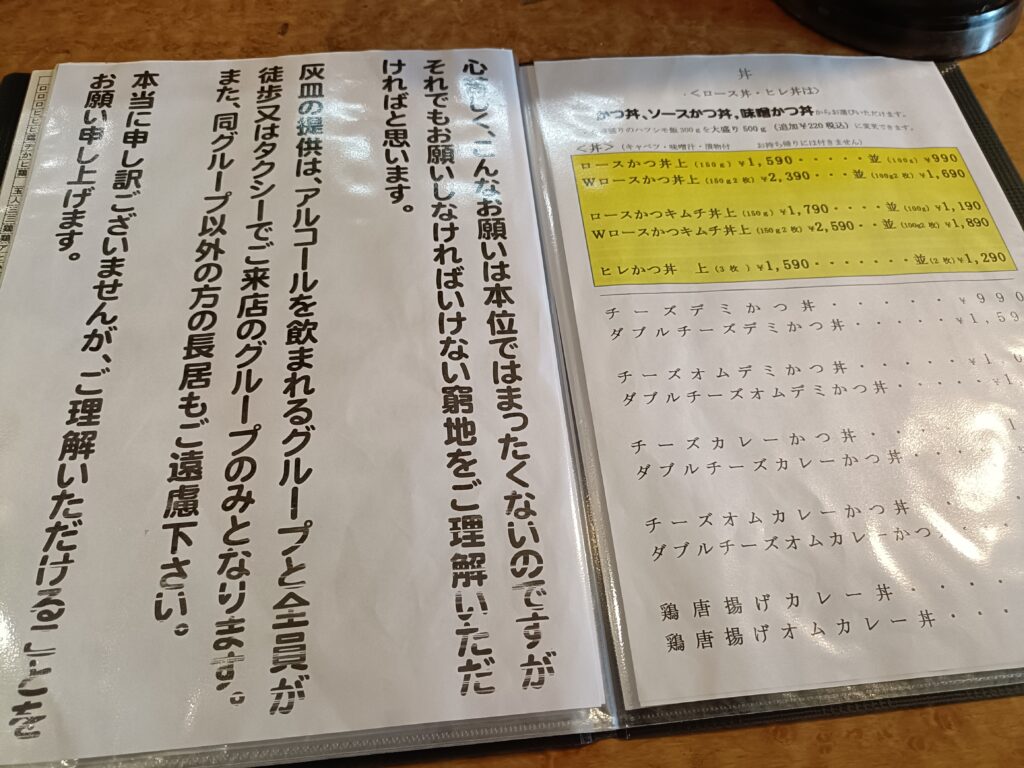 心苦しく、こんなお願いは本位ではまったくないのですが
それでもお願いしなければいけない窮地をご理解いただだ
ければと思います。
灰皿の提供は、アルコールを飲まれるグループと全員が
徒歩又はタクシーでご来店のグループのみとなります。
また、同グループ以外の方の長居もご遠慮下さい。
本当に申し訳ございませんが、ご理解いただけることを
お願い申し上げます。
丼
<ロース丼・ヒレ丼は>
かつ丼、ソースかつ丼、味噌かつ丼からお選びいただけます。
盛りのハツシモ飯300gを大盛り500g(追加¥220税込)に変更できます。
<丼>(キャベツ・味噌汁・漬物付 お持ち帰りには付きません)
ロースかつ丼上(150g)¥1,590・・・・・並(100g)¥990
Wロースかつ丼上(150g2枚)¥2,390・・・並(100g2枚)¥1,690
ロースかつキムチ丼上(150g)¥1,790・・・・並(100g)¥1,190
Wロースかつキムチ丼上(150g2枚)¥2,590・・並(100g2枚)¥1,890
ヒレかつ丼 上(3枚)¥1,590・・・・・・・並(2枚)¥1,290
チーズデミかつ丼・・・・・・・¥990
ダブルチーズデミかつ丼・・・・・¥1,59
チーズオムデミかつ丼・・・・・¥1,
ダブルチーズオムデミかつ丼・・・・¥1,
チーズカレーかつ丼・・・・・・
ダブルチーズカレーかつ丼・・・・
チーズオムカレーかつ丼・・・・
ダブルチーズオムカレーかつ
鶏唐揚げカレー丼・・・・
鶏唐揚げオムカレー丼・・・